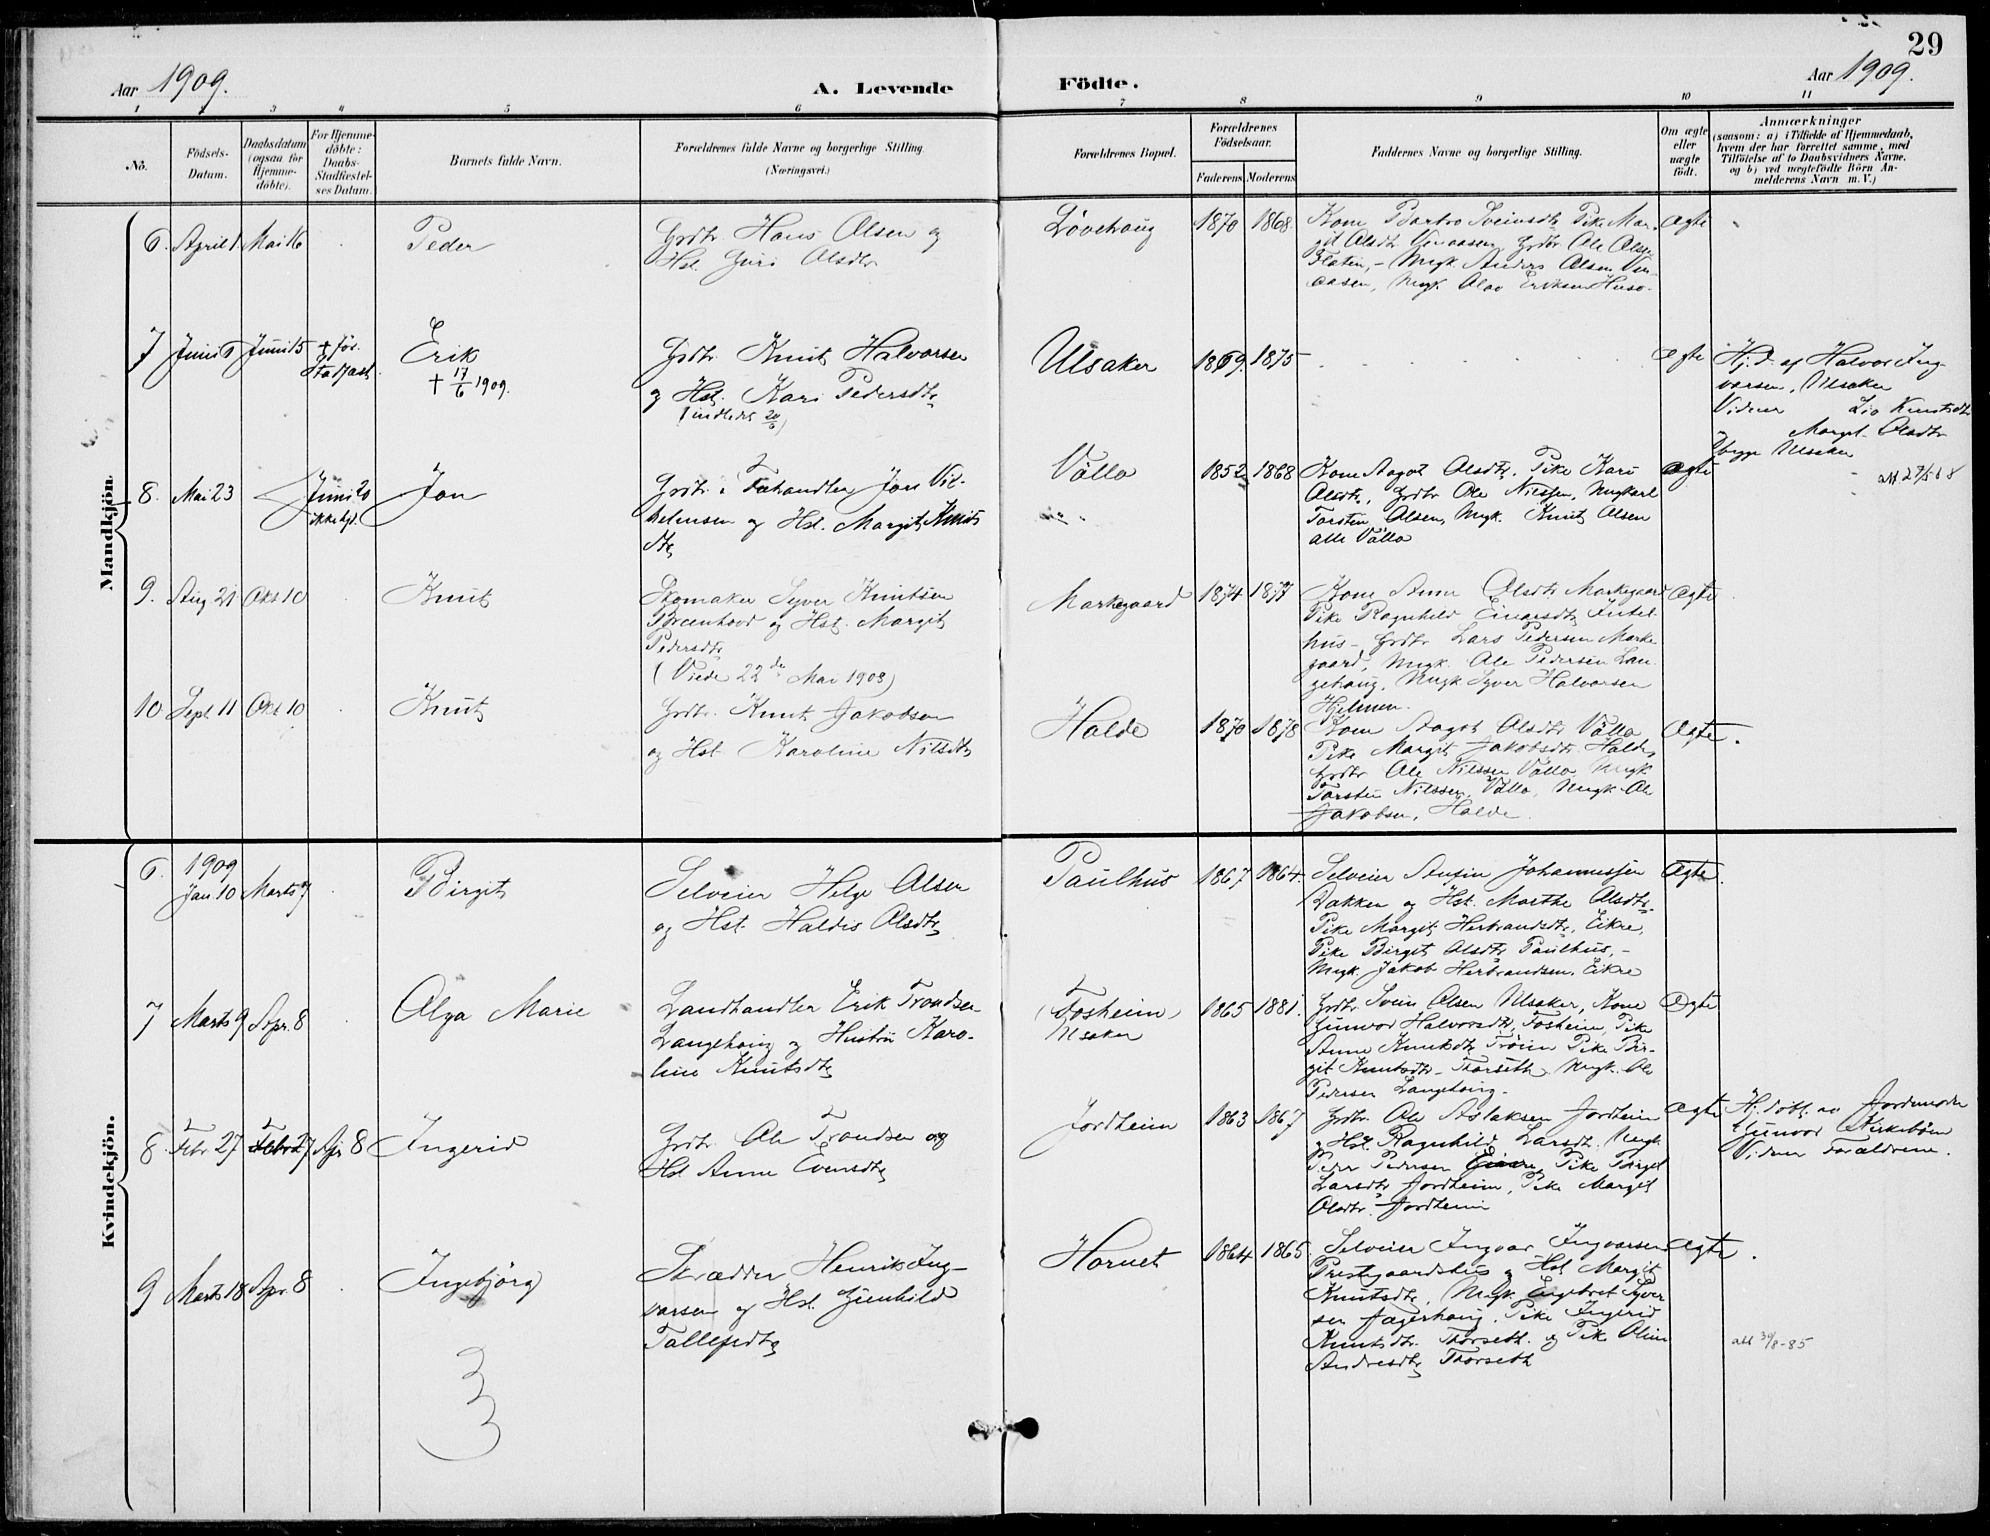 29
Aar 1909.
A. Levende
Födte.
Aar 1909.
1 2 3 4 5 6 7 8 9 10 11
No.
Födsels-
Datum.
Daabsdatum
(ogsaa for
Hjemme-
döbte).
For Hjemme-
döbte:
Daabs-
Stadfæstel-
ses Datum.
Barnets fulde Navn.
Forældrenes fulde Navne og borgerlige Stilling
(Næringsvei.)
Forældrenes Bopæl.
Forældrenes
Födselsaar.
Faderens Moderens
Faddernes Navne og borgerlige Stilling.
Om ægte
eller
uægte
födt.
Anmærkninger
(saasom: a) i Tilfælde af Hjemmedaab,
hvem der har forrettet samme, med
Tilföielse af to Daabsvidners Navne,
og b) ved uægtefödte Börn An-
melderens Navn m. V.)
Mandkjön.
6. April 1 Mai 16
Peder
Grdbr. Hans Olsen og
Hst. Guri Olsdtr
Lövehaug
1870 1868.
Kone Barbro Sveinsdtr, Pike Mar-
git Olsdtr. Grdbr Ole Olsen
Ungk. Anders Olsen
Ungk. Olav Eriksen Huso.
Ægte
7 Juni 6 Juni 15
+ før
Stadfæst.
Erik
+ 17/6 1909.
Grdbr. Knut Halvorsen
og Hst. Kari Pedersdtr
Ulsaker
1869. 1875
Ægte
Hj. D. af Halvor Ing-
varsen, Ulsaker
Vidner Liv Knutsdtr
Margit Olsdtr
begge Ulsaker
8. Mai 23
Juni 20
ikke hjd.
Jon
Grdbr. i Fæhandler Jon Vil-
helmsen og Hst. Margit Knuts
dtr
Völlo
1852 1868
Kone Aagot Olsdtr. Pike Kari
Olsdtr, Grdbr Ole Nilssen, Ungkarl
Torstein Olsen, Ungk. Knut Olsen
alle Völlo
Ægte
att 27/5 68
9. Aug 21 Okt 10
Knut
Skomaker Syver Knutsen
Breenhovd og Hst. Margit
Pedersdtr
(Viede 22de Mai 1908)
Markegaard
1874 1877
Kone Anne Olsdtr Markegaard
Pike Ragnhild Einarsdtr
hus, Grdbr Lars Pedersen Marke
gaard, Ungk. Ole Pedersen Lan-
gehaug, Ungk Syver Halvorsen
Hjelmen.
Ægte
10 Sept 11 Okt 10
Knut
Grdbr. Knut Jakobsen
og Hst Karoline Nilsdtr
Halde
1870 1878
Kone Aagot Olsdtr Völlo
Pike Margit Jakobsdtr Halde,
Grdbr Ole Nilssen Völlo, Ungk
Torstein Nilssen, Völlo, Ungk. Ole
Jakobsen, Halde.
Ægte.
Kvindekjön.
6. 1909
Jan 10 Marts 7
Birgit
Selveier Helge Olsen
og Hst. Haldis Olsdtr
Paulhus
1867 1864.
Selveier Johannessen
Bakken og Hst. Marthe Olsdtr.
Pike Margit Herbrandsdtr, Eikre,
Pike Birgit Olsdtr Paulhus, -
Ungk Jakob Herbrandsen, Eikre
Ægte.
7 Marts 9 Apr. 8
Olga Marie
Landhandler Erik Trondsen
Langehaug og Hustru Karo-
line Knutsdtr
(Fosheim)
Ulsaker
1865 1881.
Grdbr. Svein Olsen Ulsaker, Kone
Gunvor Halvorsdtr, Fosheim, Pike
Anne Knutsdtr Tröim Pike Bir-
git Knutsdtr - Thorseth Ungk. Ole
Pedersen Langehaug.
Ægte
8 Febr 27 Febr 27 Apr 8
Ingerid
Grdbr. Ole Trondsen og
Hst. Anne Evensdtr
Jordheim
1863 1867
Grdbr. Ole Aslaksen Jordheim
og Hst Ragnhild Larsdtr Ungk
Peder Pedersen Pike Birgit
Larsdtr Jordheim, Pike Margit
Olsdtr. Jordheim
Ægte
Hj.döbt av Jordmoder
Gunvor Kirkeböen
Vidner Forældrene.
9 Marts 18 Apr. 8
Ingebjörg
Skrædder Henrik Ing-
varsen og Hst. Gunhild
Tollefsdtr
Hornet
1864 1865.
Selveier Ingvar Ingvarsen
Prestegaardshus og Hst Margit
Knutsdtr, Ungk. Engebret Syver
sen Fagerhaug. Pike Ingerid
Knutsdtr. Thorseth. og Pike Oline
Andresdtr Thorseth
Ægte.
att 30/8-85